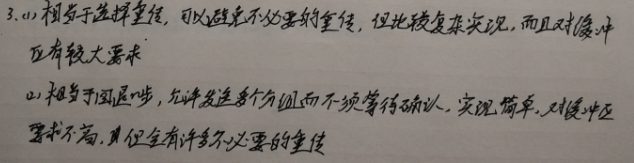 3.(1) 相当于选择重传,可以避免不必要的重传,但比较复杂实现,而且对缓冲
区有较大要求
(2) 相当于回退n步,允许发送多个分组而不须等待确认,实现简单,对缓冲区
要求不高,但会有许多不必要的重传